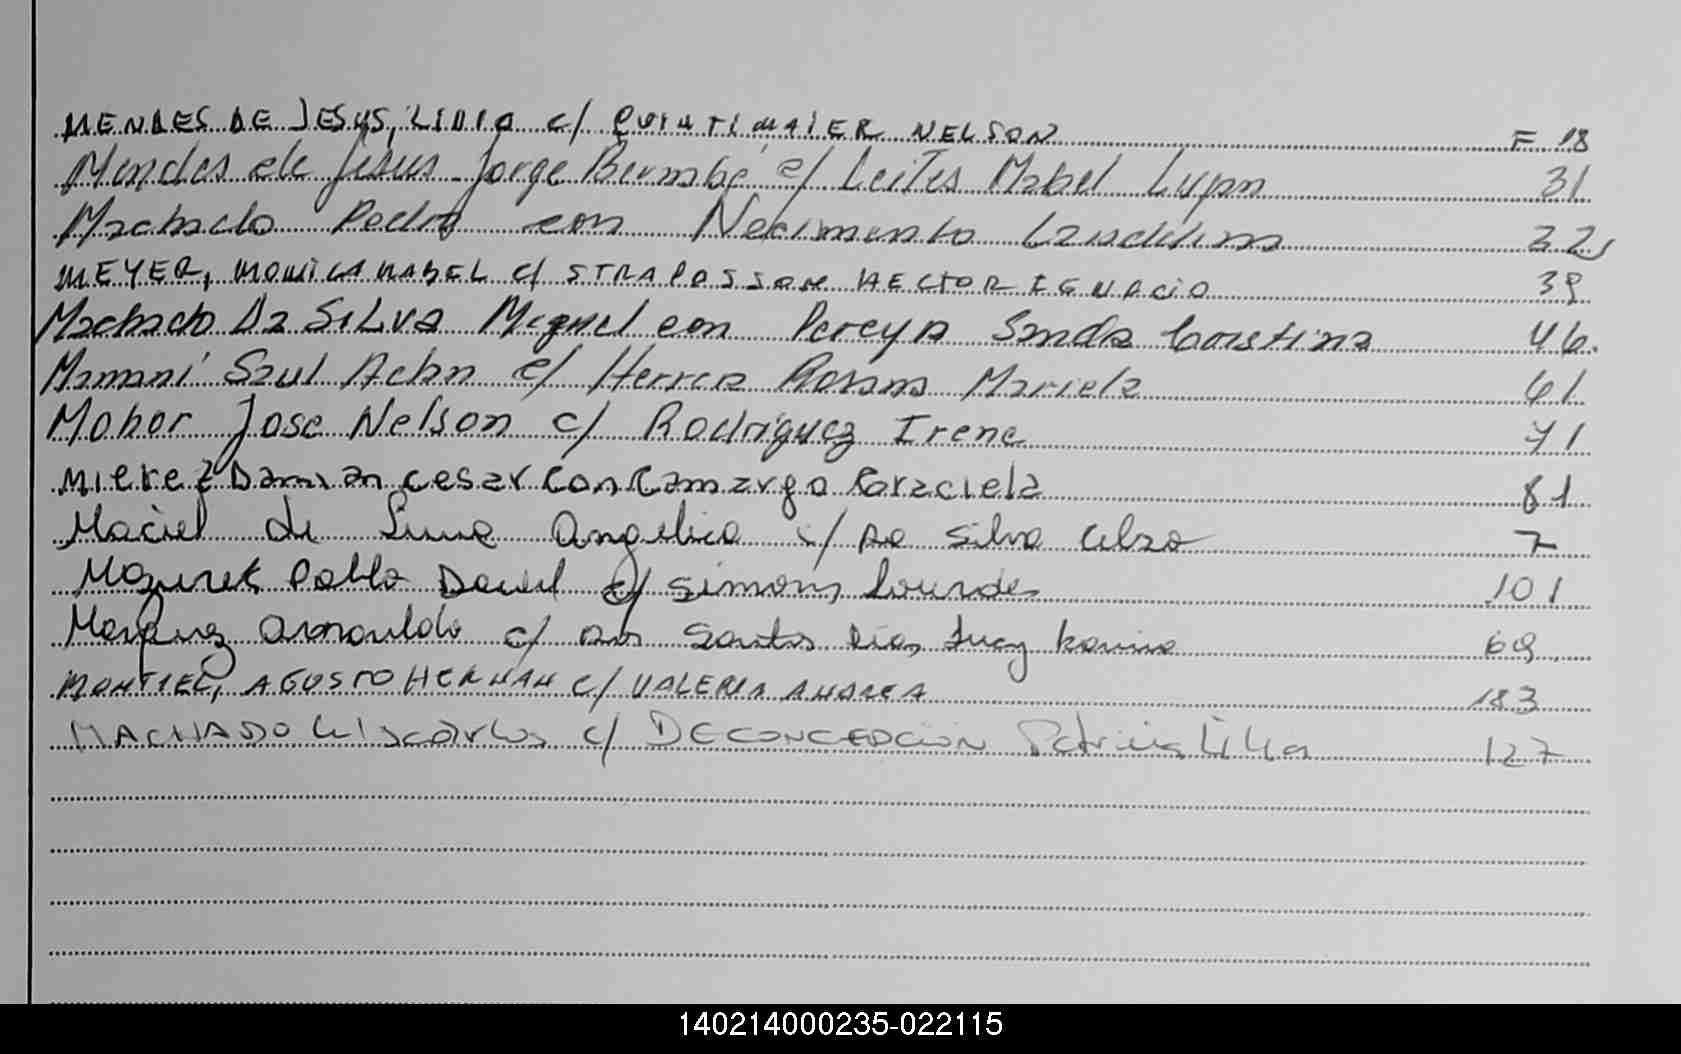 MENDES DE JESUS, LIDIA c/ QUINTIMAIER NELSON F 18
Mendes de Jesus Jorge Bernabé c/ Leites Mabel Lujan 31
Machado Pedro con Nacimento 22
MEYER, MONICA MABEL c/ STRAPOSSON HECTOR IGNACIO 39
Machado Da SiLva Miguel con Pereyra Sanda Coristina 46.
Mamani Saul Adan c/ Herrera Rosana Mariela 61
Mohor Jose Nelson c/ Rodriguez Irene 71
Mierez Damian cesar con Camargo Graciela 81
Maciel de Lima Angelica c/ Da Silva Celso 7
Mazurek Pablo Daniel c/ Simons Lourdes 101
Marquez Arnouldo c/ Dos Santos Dias Lucy Karina 69
MONTIEL, AGUSTO HERNAN c/ VALERIA ANDREA 183
MACHADO LUIS carlos c/ DECONCEPCION Patricia Lilia 127
140214000235-022115